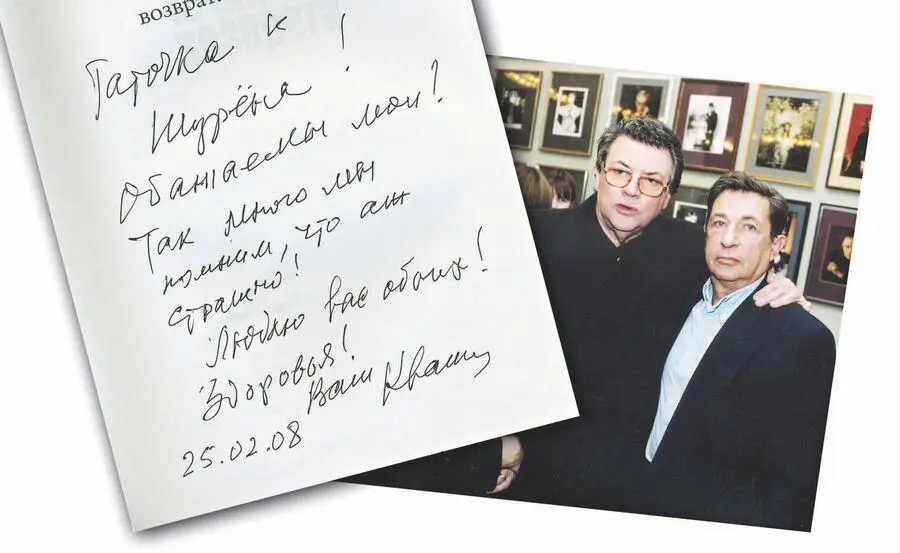 возврат
Таточка и
Шурёна!
Обажаемы мои!
Так много мы
помним, что аж
страшно!
Люблю вас обоих!
Здоровья!
Ваш Кваш
25.02.08